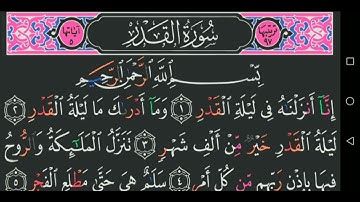 ترتيبها ٩٧ سُورَةُ الْقَدْرِ آياتها ٥
بِسْمِ اللَّهِ الرَّحْمَٰنِ الرَّحِيمِ
إِنَّا أَنزَلْنَٰهُ فِي لَيْلَةِ الْقَدْرِ ١ وَمَا أَدْرَىٰكَ مَا لَيْلَةُ الْقَدْرِ ٢
لَيْلَةُ الْقَدْرِ خَيْرٌ مِّنْ أَلْفِ شَهْرٍ ٣ تَنَزَّلُ الْمَلَٰٓئِكَةُ وَالرُّوحُ
فِيهَا بِإِذْنِ رَبِّهِم مِّن كُلِّ أَمْرٍ ٤ سَلَٰمٌ هِيَ حَتَّىٰ مَطْلَعِ الْفَجْرِ ٥